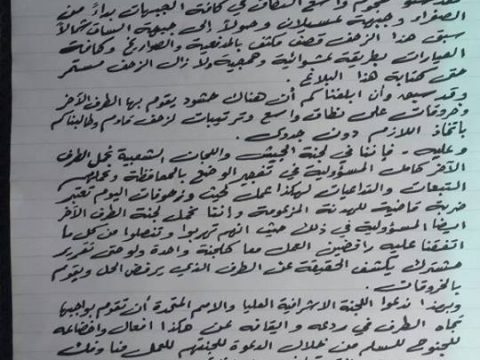 واسع النطاق في كافة الجبهات بدءاً من
الصفراء وجبهة عسيلان وصولاً إلى جبهة الساق شمالاً
سبق هذا الزحف قصف مكثف بالمدفعية والصواريخ وكافة
العيارات بطريقة عشوائية وهمجية ولا زال الزحف مستمر
حتى كتابة هذا البلاغ.
وقد سبق وأن ابلغناكم أن هناك حشود يقوم بها الطرف الآخر
وخروقات على نطاق واسع وترتيبات لزحف قادم وطالبناكم
باتخاذ اللازم دون جدوى.
وعليه - فإننا في لجنة الجيش واللجان الشعبية نحمل الطرف
الآخر كامل المسؤولية في تفجير الوضع بالمحافظة ونحملهم
التبعات والتداعيات لهكذا عمل كون زحوفات اليوم تعتبر
ضربة قاضية للهدنة المزعومة وإننا نحمل لجنة الطرف الآخر
ايضاً المسؤولية في ذلك حيث انهم تهربوا وتنصلوا من كل ما
اتفقنا عليه رافضين العمل معا كلجنة واحدة ولو حتى تقرير
مشترك يكشف الحقيقة عن الطرف الذي يرفض الحل ويقوم
بالخروقات.
وبهذا ندعوا اللجنة الاشرافية العليا والامم المتحدة أن تقوم بواجبها
تجاه الطرف في ردعه وايقافه عن هكذا افعال واخضاعه
للجنوح للسلم من خلال الدعوة للجنتهم للعمل معنا